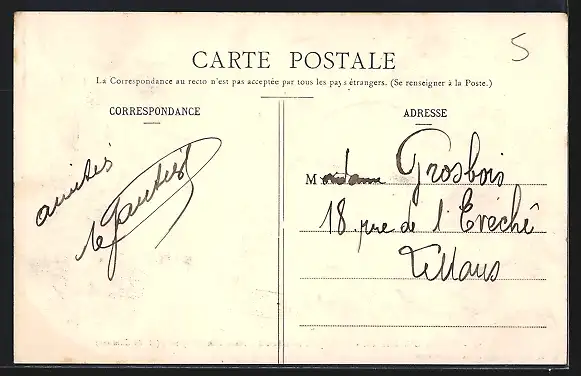 5
CARTE POSTALE
La Correspondance au recto n'est pas acceptée par tous les pays étrangers. (Se renseigner à la Poste.)
CORRESPONDANCE
amitiés
ADRESSE
Madame Grosbois
18 rue de l'Evéché
Le Mans